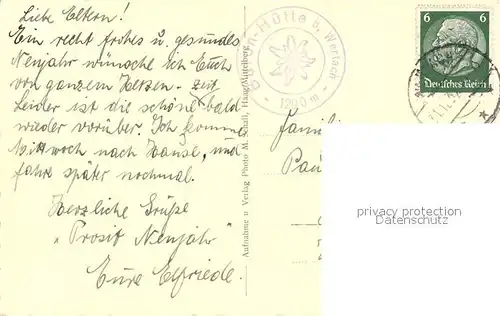 Liebe Eltern!
Ein recht frohes u. gesundes
Neujahr wünsche ich Euch
von ganzem Herzen.
Leider ist die schöne Zeit bald
wieder vorüber. Ich komme
Mittwoch nach Hause, und
fahre später nochmal.
Herzliche Grüße
"Prosit Neujahr"
Eure Elfriede.
Hütte b. Wertach
1200 m
Aufnahme u. Verlag Photo M.
Familie
6 6
Deutsches Reich
privacy protection
Datenschutz